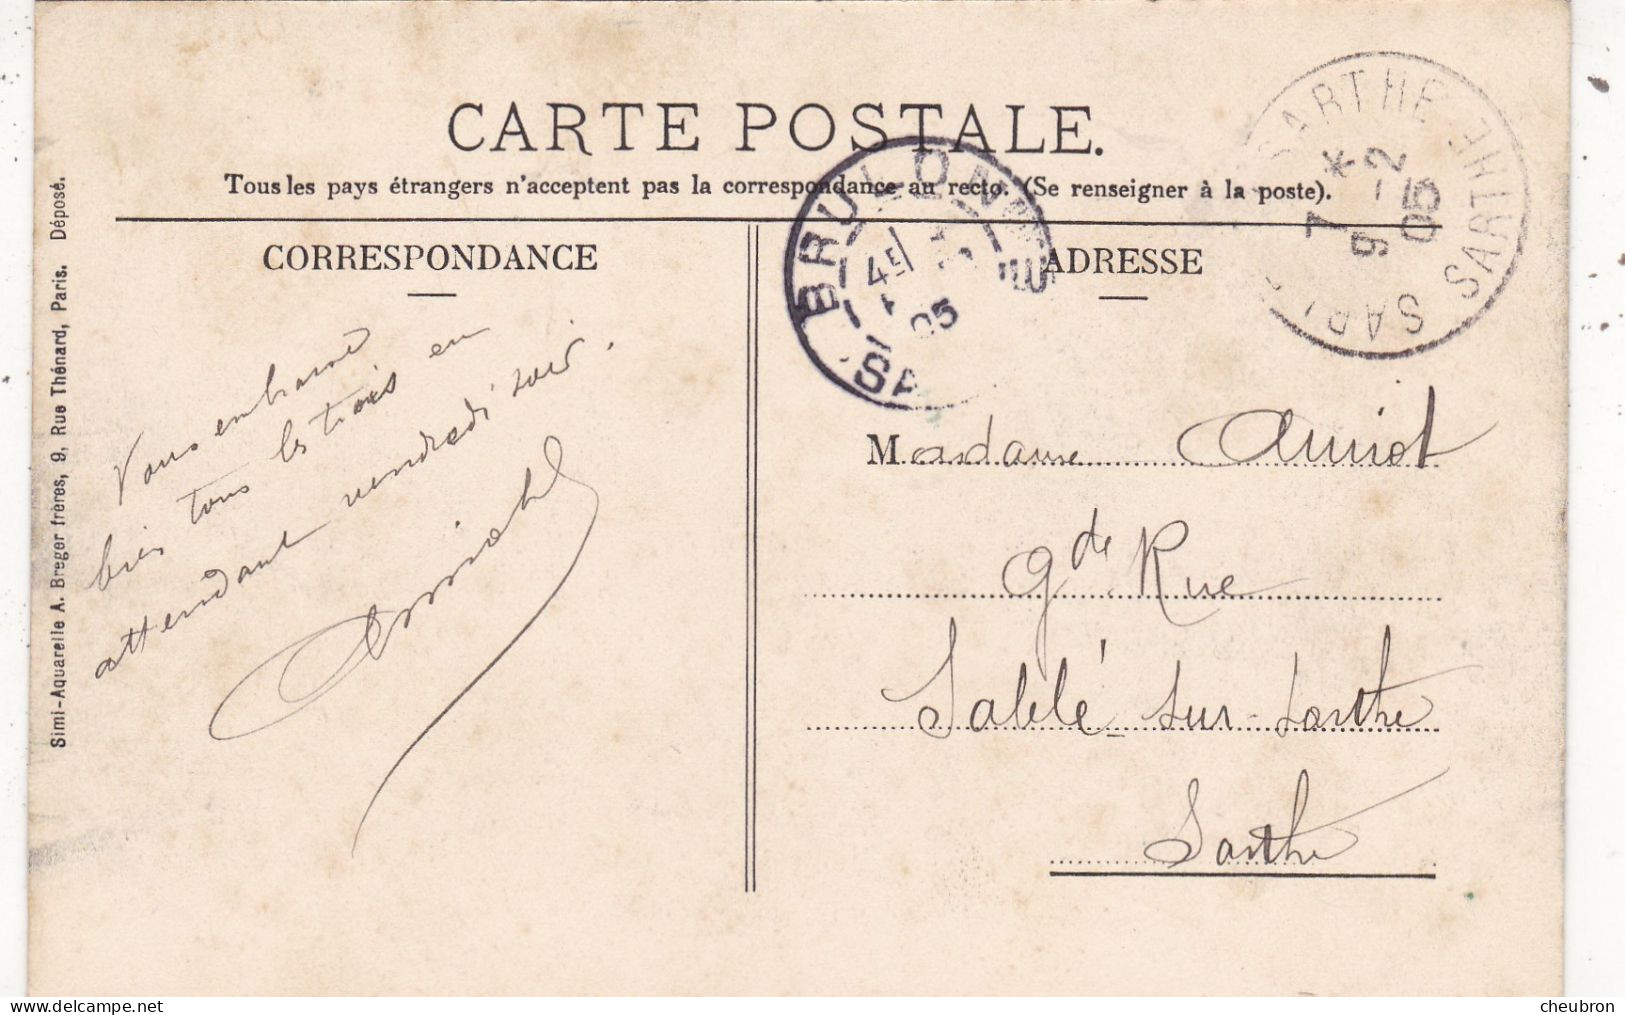 CARTE POSTALE.
Tous les pays étrangers n'acceptent pas la correspondance au recto. (Se renseigner à la poste).
CORRESPONDANCE
ADRESSE
Simi-Aquarelle A. Breger frères, 9, Rue Thénard, Paris. Déposé.
Vous embrasse
bien tous les trois en
attendant vendredi soir.
BRULON
45
05
SARTHE
7 *
9 - 2
05
SARTHE
Madame Amiot
Gde Rue
Sablé sur-Sarthe
Sarthe
www.delcampe.net
cheubron